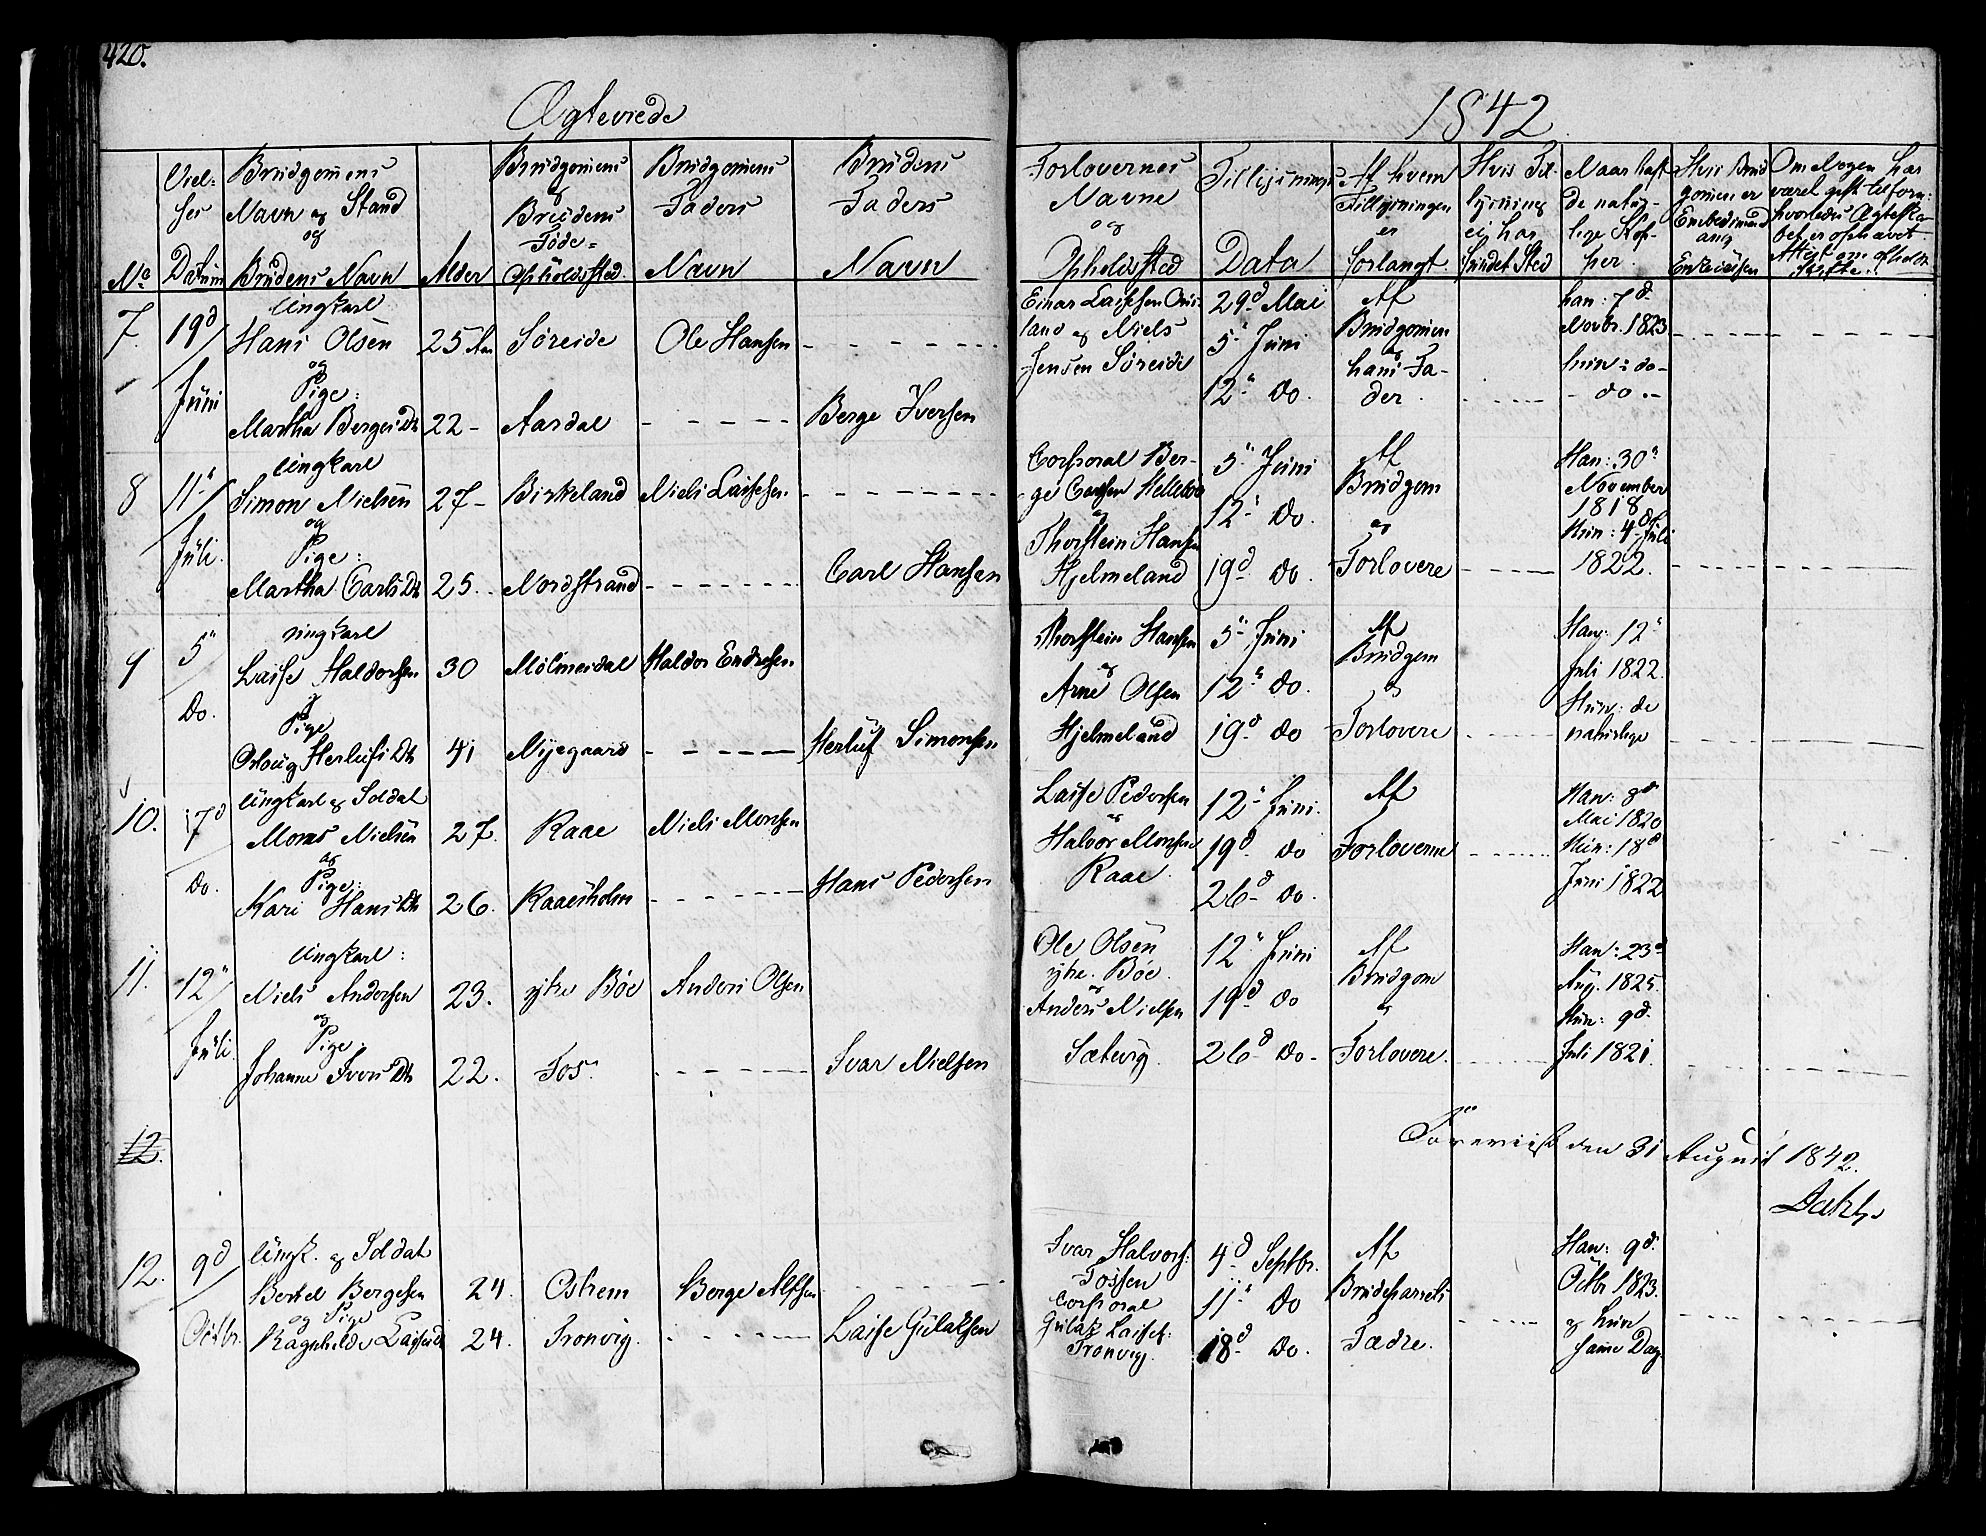 420.
Ægteviede
1842
No
Viel-
ses
Datum
Brudgomens
Navn og Stand
og
Brudens Navn
Alder
Brudgomens
og
Brudens
Føde-
Opholdssted
Brudgomens
Faders
Navn
Brudens
Faders
Navn
Forlovernes
Navne
og
Opholdssted
Tillysnings
Data
Af hvem
Tillysningen
er
forlangt.
Hvis Til-
lysning
ei har
fundet Sted
Naar haft
de natur-
lige Kop-
per.
Hvis Brud
gomen er
Om Nogen har
været gift tilforn:
7.
19d
Juni
Ungkarl
Hans Olsen
og
Pige:
Martha Berges Dt
25 Aar
22-
Søreide
Aardal
Ole Hansen
Berge Iversen
Einar Laissen
land og Niels
Jensen Søreide
29d Mai
5" Juni
12" do.
Af
Brudgomen
og
hans Fa-
der.
han: 7d
Novbr. 1823
hun: do-
- do.-
8
11"
Juli.
Ungkarl
Simon Nielsen
og
Pige:
Martha Carls Dt
27-
25.
Birkeland
Nordstrand
Niels Laissen
Carl Hansen
Corporal Ber-
ge Carlsen
og
Thorstein Hansen
Hjelmeland
5" Juni
12" do.
19d do.
Af
Brudgom
og
Forlovere
Han: 30"
November
1818
Hun: 4d Juli
1822.
9
5"
do.
Ungkarl
Laisse Haldorsen
og
Pige
Herlufs Dt
30
41
Mølmesdal
Nyegaard
Haldor Endresen
Herluf Simonsen
Thorstein Hansen
og
Arne Olsen
Hjelmeland
5" Juni
12" do.
19d do
Af
Brudgom
og
Forlovere
Han: 12"
Juli 1822.
Hun: de
naturlige
10.
7d
do.
Ungkarl og Soldat
Mons Nielsen
og
Pige:
Kari Hans Dt
27.
26.
Raae
Raaesholm
Niels Monsen
Hans Pedersen
Laisse Pedersen
og
Halvor Monsen
Raae.
12" Juni.
19d do
26d do.
Af
Forloverne
Han: 8d
Mai 1820
Hun: 18d
Juni 1822
11.
12"
Juli
Ungkarl:
Niels Andersen
og
Pige:
Johanne Ivers Dt
23.
22.
ytre Bøe
Fos.
Anders Olsen
Ivar Nielsen
Ole Olsen
ytre. Bøe.
og
Anders Nielsen
Sæbvig.
12" Juni
19d do
26d do-
Af
Brudgom
og
Forlovere.
Han: 23d
Aug. 1825.
Hun: 9d.
Juli 1821.
12.
Foreviist den 31 August 1842.
12.
9d
Octbr.
Ungk. og Soldat
Bertel Bergesen
og Pige
Ragnhilde Laisses Dt
24.
24.
Ostrem
Tronvig.
Berge Alfsen
Laisse Gulaksen
Ivar Halvors:
Fossen
Corporal
Gulak Laises:
Tronvig.
4d Septbr.
11" do
18d do.
Af
Brudeparrets
Fædre.
Han: 9d.
Octbr 1823.
og hun
samme Dag.